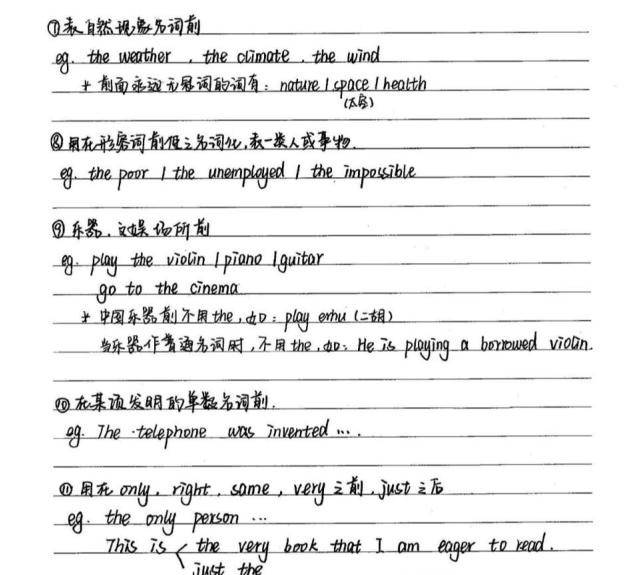 ⑦表自然现象名词前
eg. the weather , the climate , the wind
* 前面永远无冠词的词有: nature / space / health
(太空)
⑧用在形容词前使之名词化,表一类人或事物.
eg. the poor / the unemployed / the impossible
⑨乐器、文娱场所前
eg. play the violin / piano / guitar
go to the cinema
* 中国乐器前不用the,如: play erhu (二胡)
当乐器作普通名词时,不用the,如: He is playing a borrowed violin.
⑩在某项发明的单数名词前.
eg. The telephone was invented ….
⑪用在 only, right, same, very 之前, just 之后
eg. the only person …
This is < the very book that I am eager to read.
just the